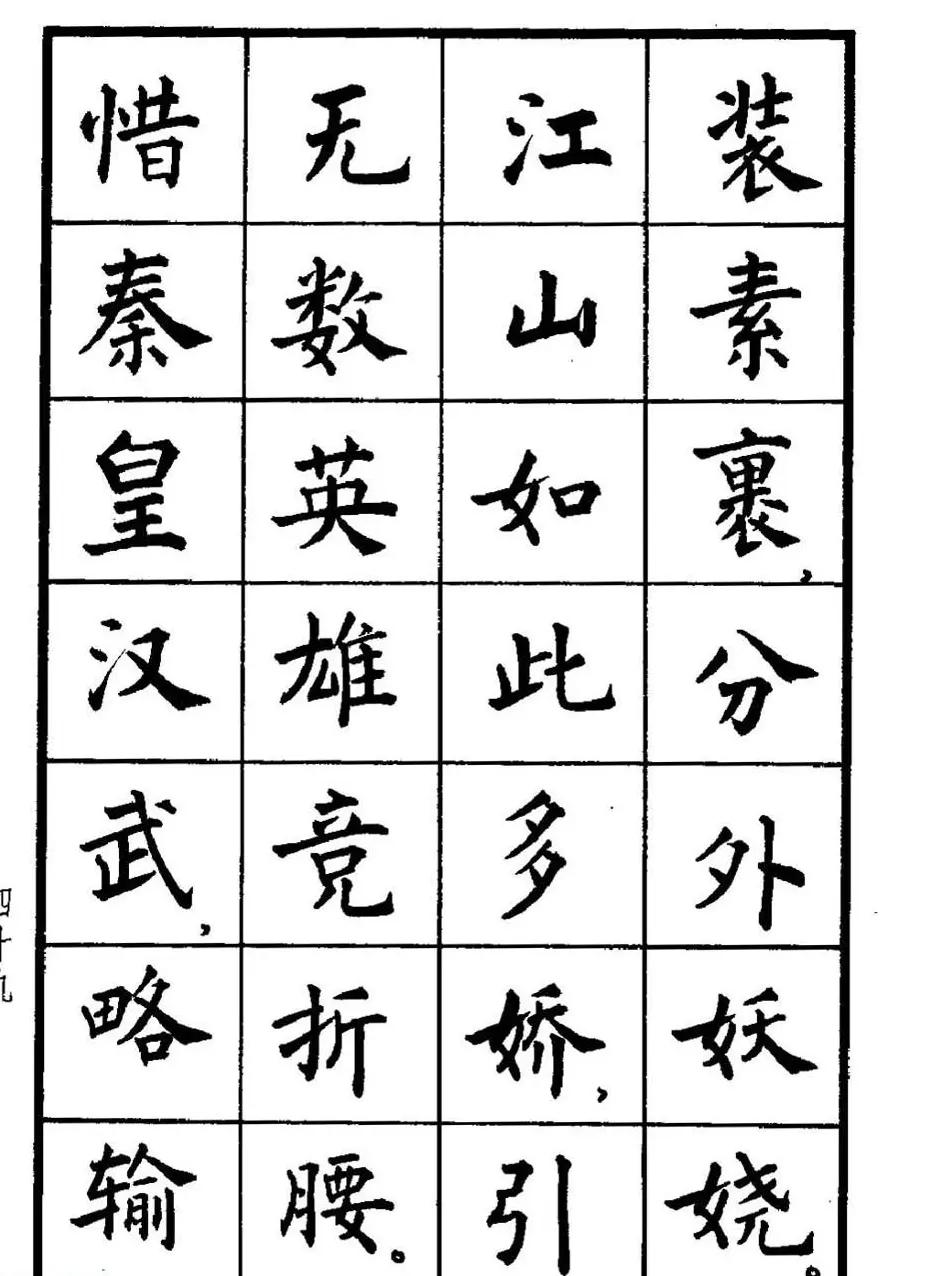 装素裹,分外妖娆。
江山如此多娇,引
无数英雄竞折腰。
惜秦皇汉武,略输
四十九